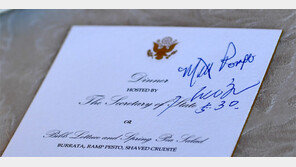 Dinner
HOSTED BY
The Secretary of State
5.30.
OR
Bibb Lettuce and Spring Pea Salad
BURRATA, RAMP PESTO, SHAVED CRUDITÉ